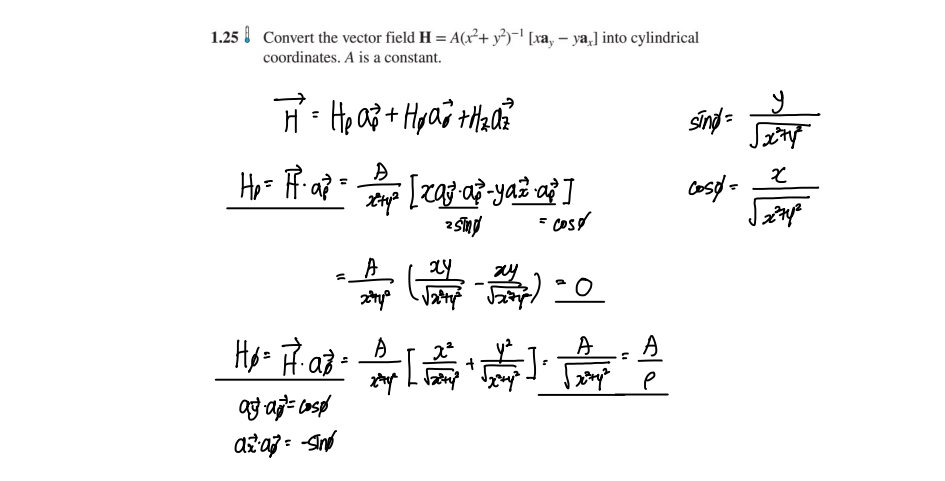 1.25 Convert the vector field H = A(x²+ y²)⁻¹ [xa_y − ya_x] into cylindrical
coordinates. A is a constant.
H⃗ = Hρ a⃗ρ + Hϕ a⃗ϕ + Hz a⃗z
sinϕ = y/√(x²+y²)
Hρ = H⃗·a⃗ρ = A/(x²+y²) [x a⃗y·a⃗ρ - y a⃗x·a⃗ρ]
cosϕ = x/√(x²+y²)
=sinϕ = cosϕ
= A/(x²+y²) (xy/√(x²+y²) - xy/√(x²+y²)) = 0
Hϕ = H⃗·a⃗ϕ = A/(x²+y²) [x²/√(x²+y²) + y²/√(x²+y²)] = A/√(x²+y²) = A/ρ
a⃗y·a⃗ϕ = cosϕ
a⃗x·a⃗ϕ = -sinϕ